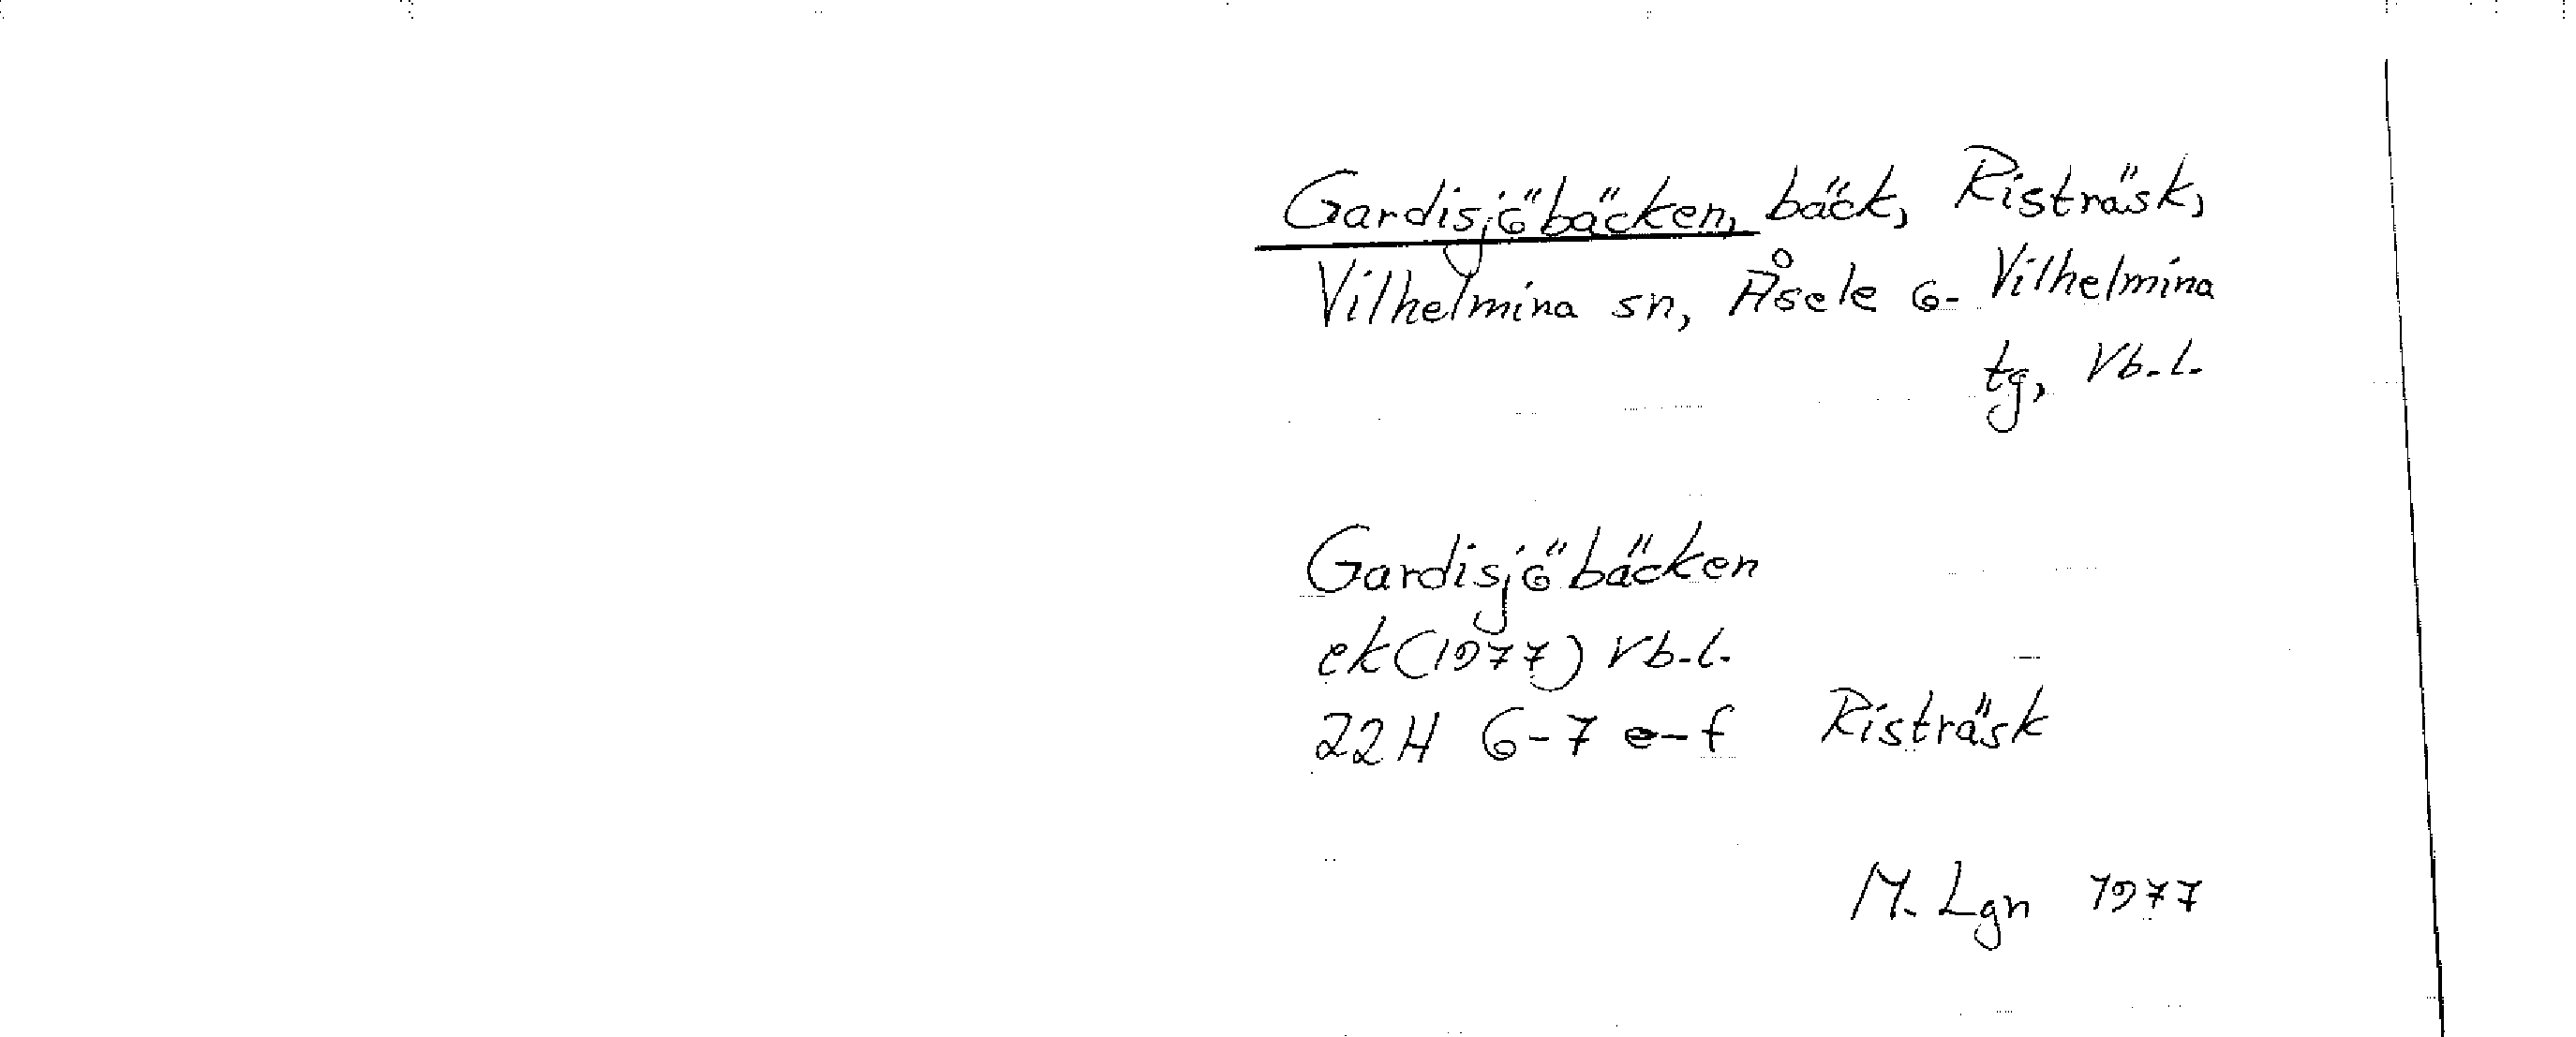 Gardisjöbäcken, bäck, Risträsk,
Vilhelmina sn, Åsele o- Vilhelmina
tg, Vb.l.
Gardisjöbäcken
ek (1977) Vb.l.
22H 6-7 e-f Risträsk
M. Lgn 1977